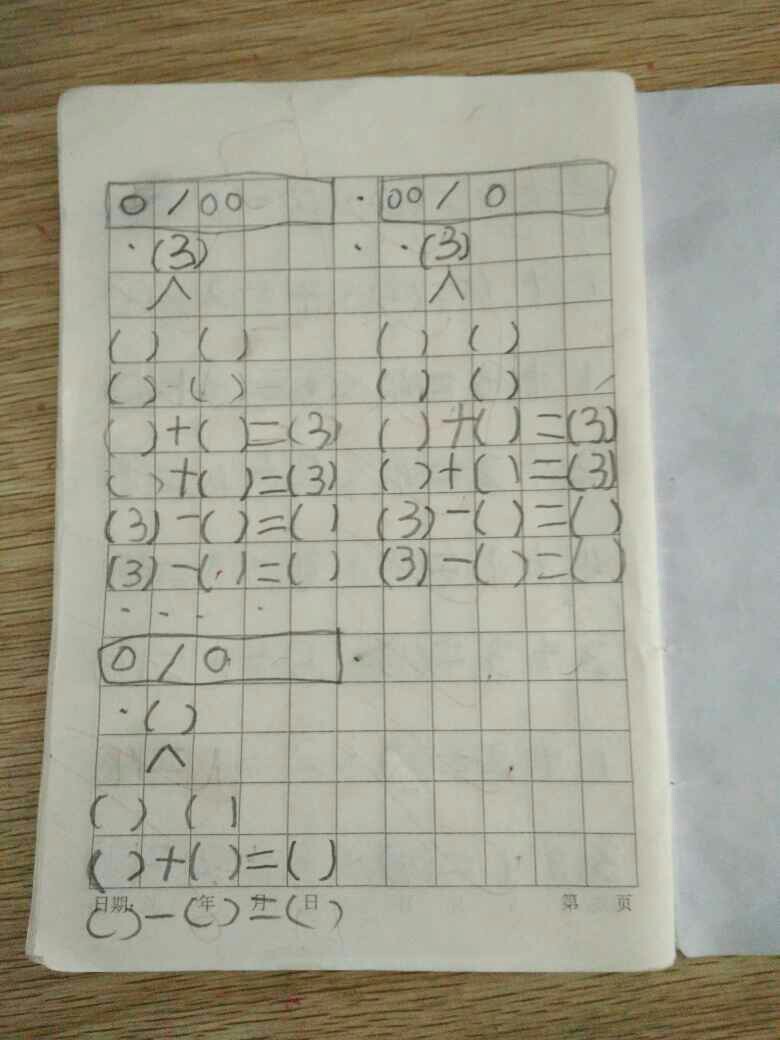 0 / 00 · 00 / 0
· (3) · · (3)
∧ ∧
( ) ( ) ( ) ( )
( ) ( ) ( ) ( )
( )+( )=(3) ( )+( )=(3)
( )+( )=(3) ( )+( )=(3)
(3)-( )=( ) (3)-( )=( )
(3)-( )=( ) (3)-( )=( )
0 / 0
· ( )
∧
( ) ( )
( )+( )=( )
日期: 年 月 日 第 页
( )-( )=( )